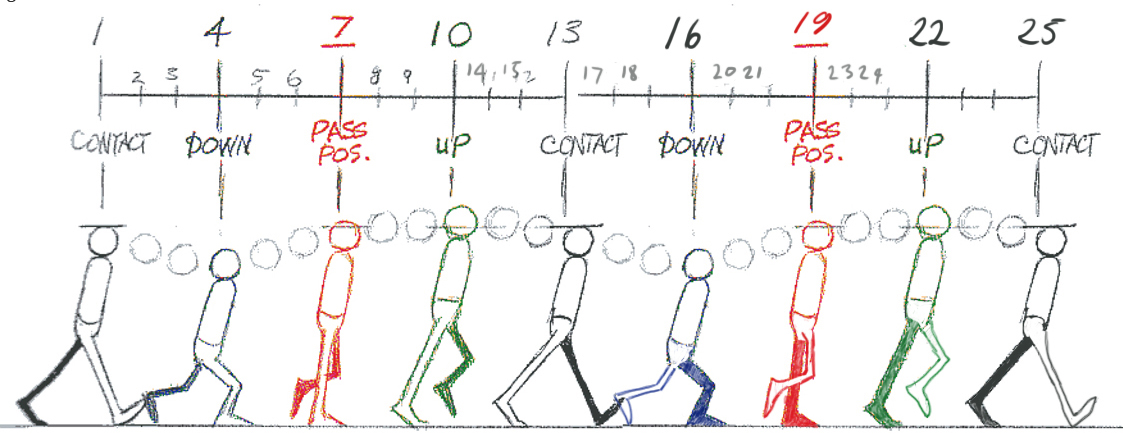 1 4 7 10 13 16 19 22 25
2 3 5 6 8 9 14, 15, 2 17 18 20 21 23 24
CONTACT DOWN PASS POS. UP CONTACT DOWN PASS POS. UP CONTACT